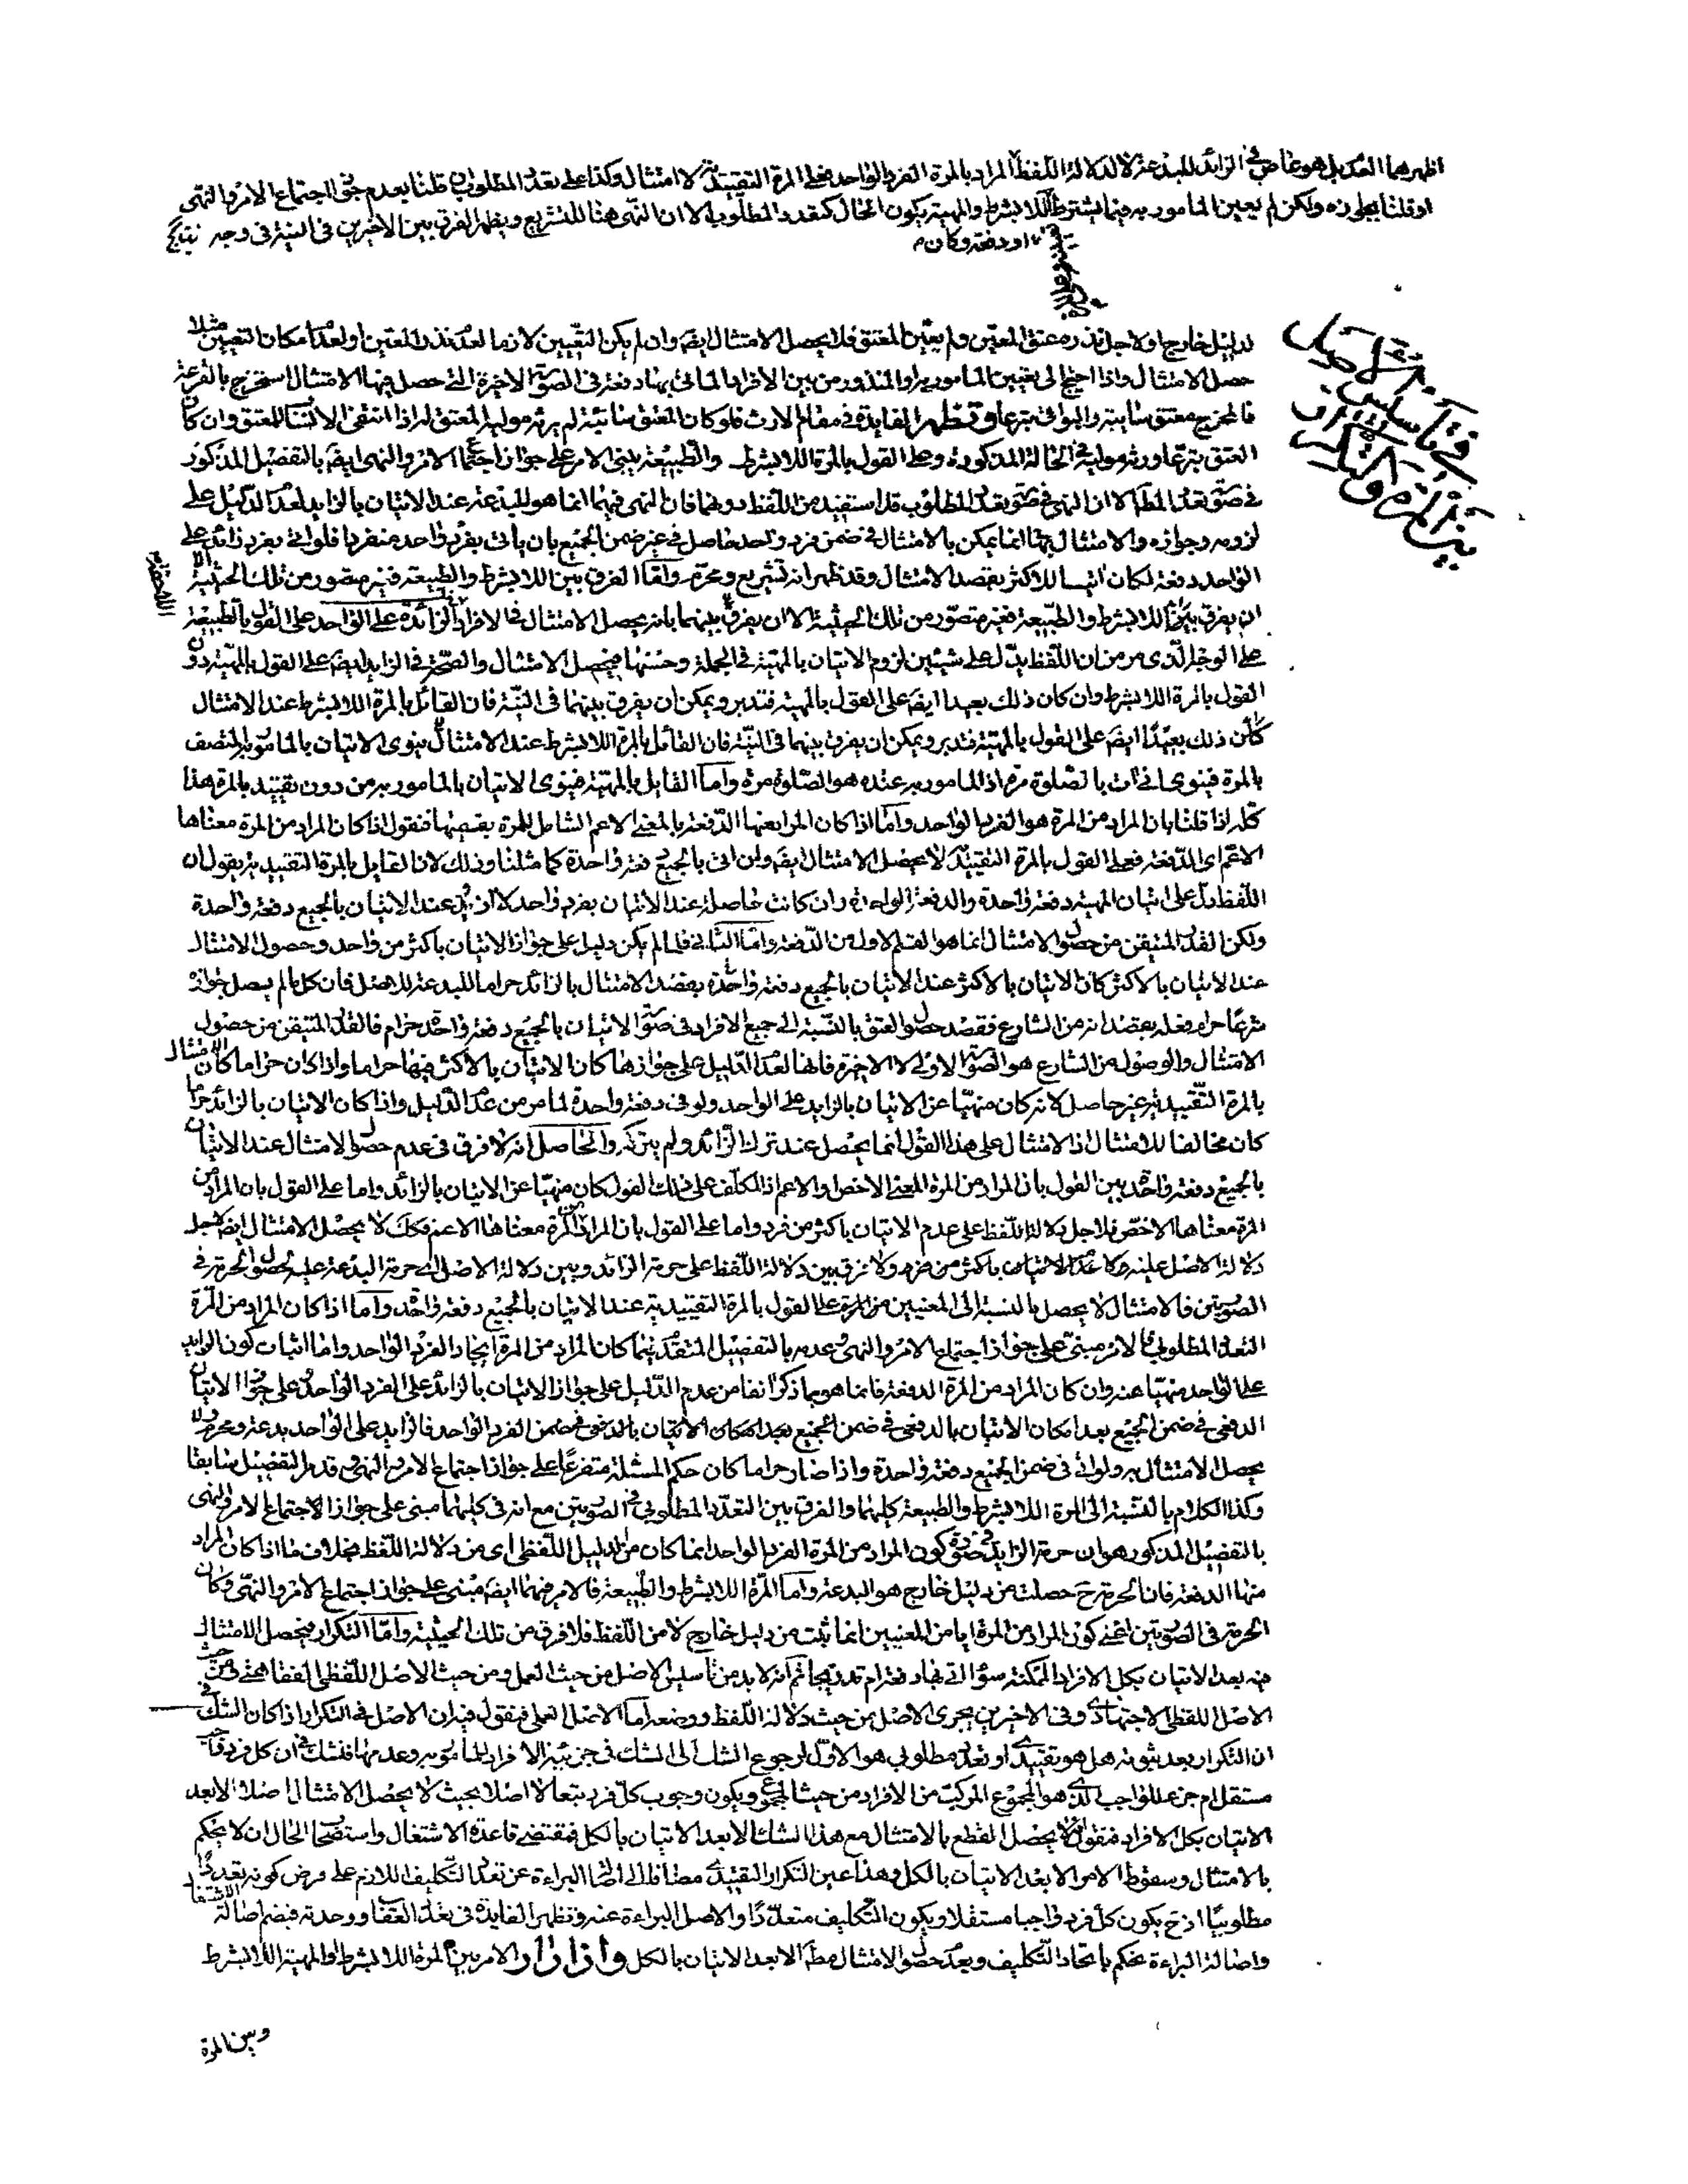 اظهرهما العدم بل هو عاص في الزائد للبدعة لا لدلالة اللفظ المراد بالمرة الفرد الواحد فعلى المرة التقييدية لا امتثال وكذا على تعدد المطلوب ان قلنا بعدم جواز اجتماع الامر والنهى
او قلنا بجوازه ولكن لم يعين المامور به فيما يشترط اللابشرط والمهية يكون الحال كتعدد المطلوب الا ان النهى هنا للتشريع ويظهر الفرق بين الاخيرين فى النية فى وجه
او دفعة وكان
لدليل خارج او لاجل نذره عتق المعين ولم يعين المعتق فلا يحصل الامتثال ايضا وان لم يكن التعيين لازما لعدم نذر المعين او لعدم امكان التعيين مثلا
حصل الامتثال واذا احتج الى تعيين المامور به او المنذور من بين الافراد الماتى بها دفعة فى الصورة الاخيرة التى حصل فيها الامتثال استخرج بالقرعة
فالمخرج معتق سايبة والبواقى متبرعا وتظهر الفايدة فى مقام الارث فلو كان العتق سائبة لم يرثه مولاه المعتق له اذا انتفى الانتساب للمعتق وان كان
العتق متبرعا ورثه مولاه فى الحالة المذكورة وعلى القول بالمرة اللابشرط والطبيعة يبنى الامر على جواز اجتماع الامر والنهى ايضا بالتفصيل المذكور
فى صورة تعدد المط الا ان النهى فى صورة تعدد المطلوب قد استفيد من اللفظ دونهما فان النهى فيهما انما هو للبدعة عند الاتيان بالزايد لعدم الدليل على
لزومه وجوازه والامتثال بهما انما يمكن بالامتثال فى ضمن فرد واحد حاصل فى غير ضمن الجميع بان ياتى بفرد واحد منفردا فلو اتى بفرد زائد على
الواحد دفعة لكان اتيانا للاكثر بقصد الامتثال وقد ظهر انه تشريع ومحرم واما الفرق بين اللابشرط والطبيعة فغير متصور من تلك الحيثية الا
ان يفرق بين اللابشرط والطبيعة فغير متصور من تلك الحيثية الا ان يفرق بينهما بانه يحصل الامتثال فى الافراد الزائدة على الواحد على القول بالطبيعة
على الوجه الذى مر من ان اللفظ يدل على شيئين لزوم الاتيان بالمهية فى الجملة وحسنها فيحصل الامتثال والصحة فى الزايد ايضا على القول بالمهية دون
القول بالمرة اللابشرط وان كان ذلك بعيدا ايضا على القول بالمهية فتدبر ويمكن ان يفرق بينهما فى النية فان القائل بالمرة اللابشرط عند الامتثال
كان ذلك بعيدا ايضا على القول بالمهية فتدبر ويمكن ان يفرق بينهما فى النية فان القائل بالمرة اللابشرط عند الامتثال ينوى الاتيان بالمامور به المتصف
بالمرة فينوى انى ات بالصلوة مرة اذ المامور به عنده هو الصلوة مرة واما القايل بالمهية فينوى الاتيان بالمامور به من دون تقييد بالمرة هذا
كله اذا قلنا بان المراد من المرة هو الفرد الواحد واما اذا كان المراد منها الدفعة بالمعنى الاعم الشامل للمرة بقسميها فنقول اذا كان المراد من المرة معناها
الاعم اى الدفعة فعلى القول بالمرة التقييدية لا يحصل الامتثال ايضا وان اتى بالجميع دفعة واحدة كما مثلنا وذلك لان القايل بالمرة التقييدية يقول ان
اللفظ دل على اتيان المهية دفعة واحدة والدفعة الواحدة وان كانت حاصلة عند الاتيان بفرد واحد كما عند الاتيان بالجميع دفعة واحدة
ولكن القدر المتيقن من حصول الامتثال انما هو القسم الاول من الدفعة واما الثانى فلما لم يكن دليل على جواز الاتيان باكثر من واحد وحصول الامتثال
عند الاتيان بالاكثر كان الاتيان بالاكثر عند الاتيان بالجميع دفعة واحدة بقصد الامتثال بالزائد حراما للبدعة للاصل فان كل ما لم يصل جوازه
شرعا حرام فعله بقصد انه من الشارع فقصد حصول العتق بالنسبة الى جميع الافراد فى صورة الاتيان بالجميع دفعة واحدة حرام فالقدر المتيقن من حصول
الامتثال والوصول من الشارع هو الصورة الاولى لا الاخيرة فانها لعدم الدليل على جوازها كان الاتيان بالاكثر فيها حراما واذا كان حراما كان الامتثال
بالمرة التقييدية غير حاصل لانه كان منهيا عن الاتيان بالزايد على الواحد ولو فى دفعة واحدة لما مر من عدم الدليل واذا كان الاتيان بالزائد حراما
كان مخالفا للامتثال اذ الامتثال على هذا القول انما يحصل عند ترك الزائد ولم يتركه والحاصل انه لا فرق فى عدم حصول الامتثال عند الاتيان
بالجميع دفعة واحدة بين القول بان المراد من المرة المعنى الاخص او الاعم اذ المكلف على ذلك القول كان منهيا عن الاتيان بالزائد واما على القول بان المراد من
المرة معناها الاخص فلاجل دلالة اللفظ على عدم الاتيان باكثر من فرد واما على القول بان المراد من المرة معناها الاعم فكك لا يحصل الامتثال ايضا لاجل
دلالة الاصل عليه باكثر من فرد ولا فرق بين دلالة اللفظ على حرمة الزائد وبين دلالة الاصل اى حرمة البدعة عليه لحصول الحرمة فى
الصورتين فالامتثال لا يحصل بالنسبة الى المعنيين من المرة على القول بالمرة التقييدية عند الاتيان بالجميع دفعة واحدة واما اذا كان المراد من المرة
التعدد المطلوبى فالامر مبنى على جواز اجتماع الامر والنهى وعدمه بالتفصيل المتقدم فيما كان المراد من المرة ايجاد الفرد الواحد واما اثبات كون الزايد
على الواحد منهيا عنه وان كان المراد من المرة الدفعة فانما هو بما ذكر انفا من عدم الدليل على جواز الاتيان بالزائد على الفرد الواحد وعلى جواز الاتيان
الدفعى فى ضمن الجميع بعد امكان الاتيان بالدفعى فى ضمن الجميع بعد امكان الاتيان بالدفعى فى ضمن الفرد الواحد فالزايد على الواحد بدعة ومحرم ولا
يحصل الامتثال به ولو اتى فى ضمن الجميع دفعة واحدة واذا صار حراما كان حكم المسئلة متفرعا على جواز اجتماع الامر والنهى وقد مر التفصيل سابقا
وكذا الكلام بالنسبة الى المرة اللابشرط والطبيعة كليهما والفرق بين التعدد المطلوبى فى الصورتين مع انه فى كليهما مبنى على جواز الاجتماع الامر والنهى
بالتفصيل المذكور هو ان حرمة الزايد فى صورة كون المراد من المرة الفرد الواحد انما كان من الدليل اللفظى اى من دلالة اللفظ بخلاف ما اذا كان المراد
منها الدفعة فان الحرمة ح حصلت من دليل خارج هو البدعة واما المرة اللابشرط والطبيعة فالامر فيهما ايضا مبنى على جواز اجتماع الامر والنهى وكان
الحرمة فى الصورتين اعنى كون المراد من المرة ايا من المعنيين انما ثبت من دليل خارج لا من اللفظ فلا فرق من تلك الحيثية واما التكرار فيحصل الامتثال
فيه بعد الاتيان بكل الافراد الممكنة سواء اتى بها دفعة ام تدريجا ثم انه لا بد من تاسيس الاصل من حيث العمل ومن حيث الاصل اللفظى من حيث
الاصل اللفظى الاجتهادى وفى الاخرين يجرى الاصل من حيث دلالة اللفظ ووضعه اما الاصل العملى فنقول فيه ان الاصل فى التكرار اذا كان الشك فى
ان التكرار بعد ثبوته هل هو تقييدى او تعدد مطلوبى هو الاول لرجوع الشك الى الشك فى جزئية الافراد للمامور به وعدمها فنشك فى ان كل فرد
مستقل ام جزء للواجب الذى هو المجموع المركب من الافراد من حيث المجموع ويكون وجوب كل فرد تبعا لا اصلا بحيث لا يحصل الامتثال اصلا الا بعد
الاتيان بكل الافراد فنقول لا يحصل القطع بالامتثال مع هذا الشك الا بعد الاتيان بالكل فمقتضى قاعدة الاشتغال واستصحاب الحال ان لا يحكم
بالامتثال وسقوط الامر الا بعد الاتيان بالكل وهذا عين التكرار التقييدى مضافا الى اصالة البراءة عن تعدد التكليف اللازم على فرض كونه تعددا
مطلوبيا اذ ح يكون كل فرد واجبا مستقلا ويكون التكليف متعددا والاصل البراءة عنه وتظهر الفايدة فى تعدد العقاب ووحدته فبضم اصالة الاشتغال
واصالة البراءة يحكم باتحاد التكليف وبعدم حصول الامتثال مط الا بعد الاتيان بالكل واذا دار الامر بين المرة اللابشرط والمهية اللابشرط
وبين المرة